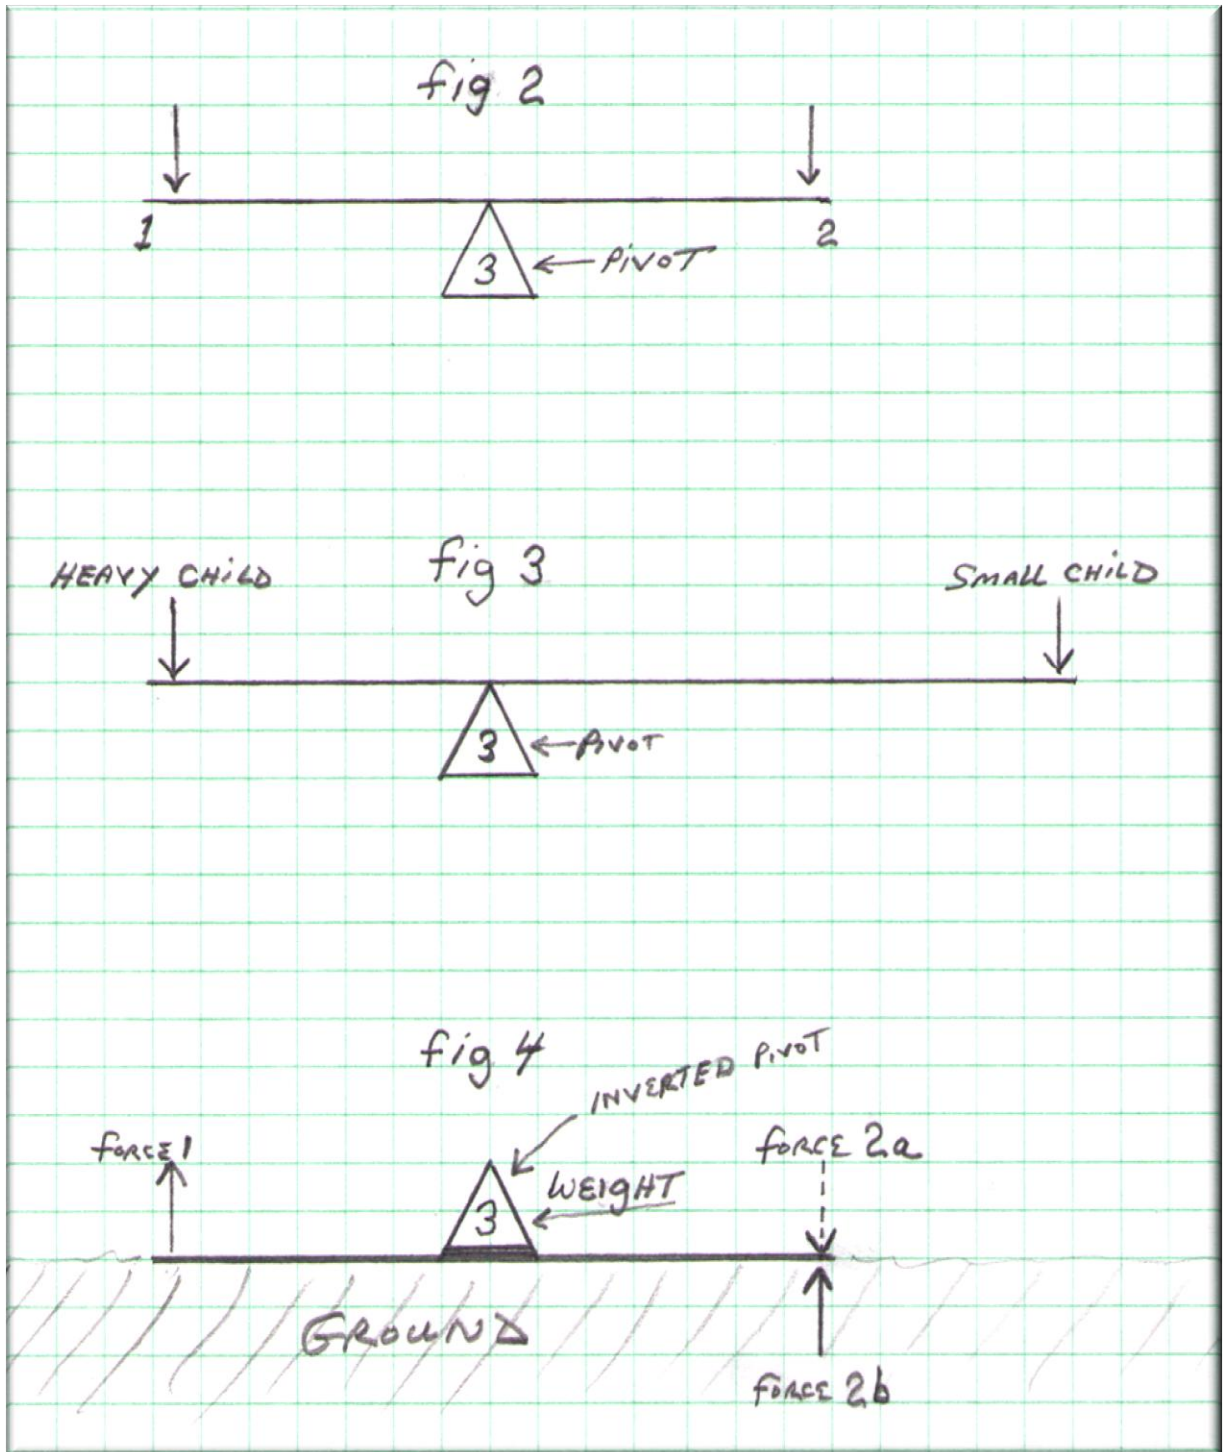 fig 2
1
2
3
PIVOT
fig 3
HEAVY CHILD
SMALL CHILD
3
PIVOT
fig 4
INVERTED PIVOT
FORCE 1
FORCE 2a
WEIGHT
3
GROUND
FORCE 2b